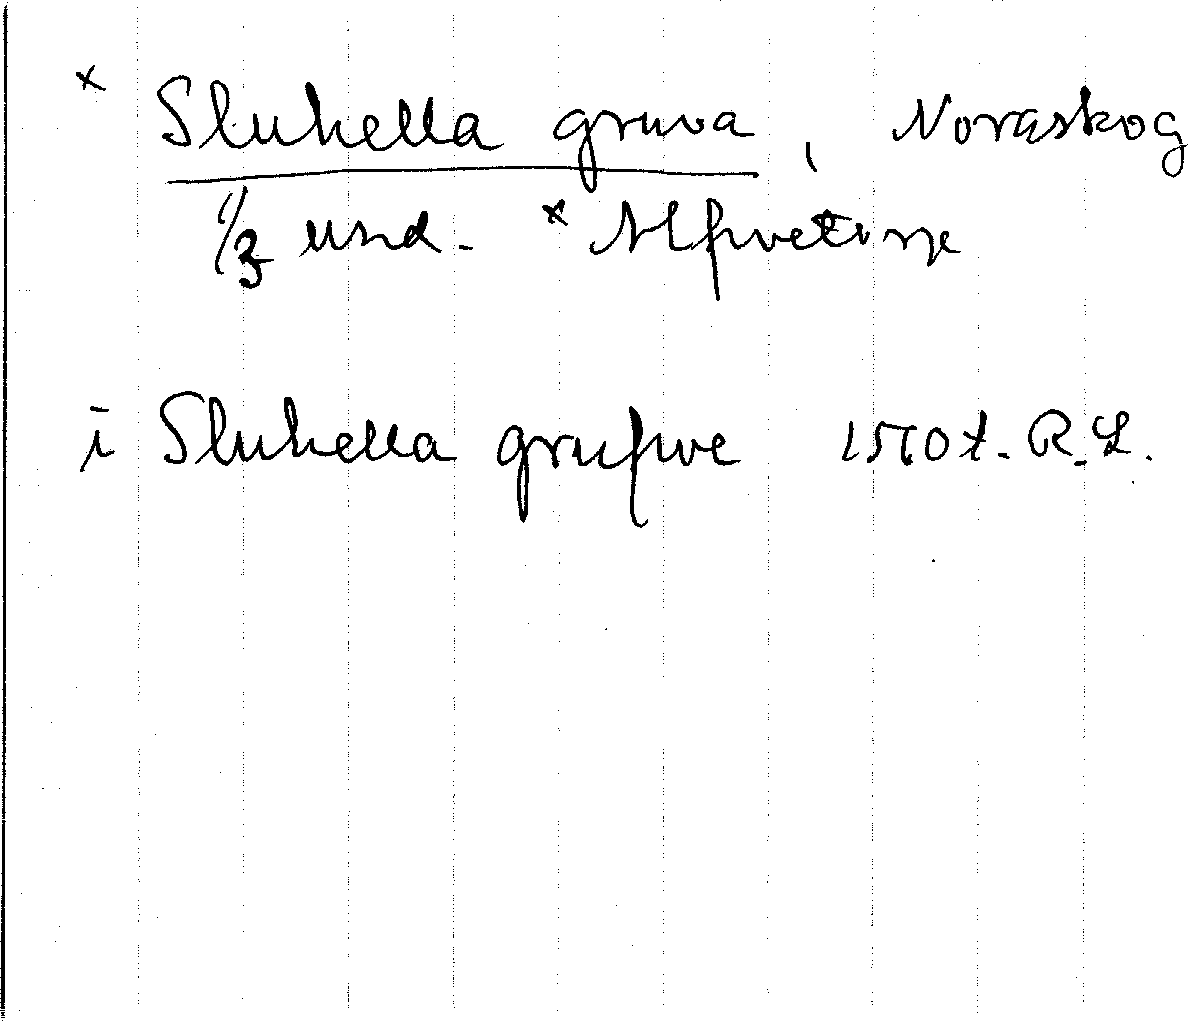 × Sluhella gruva, Noraskog
1/3 und. × Alfwetorp
i Sluhella grufwe 1570 t. R.L.